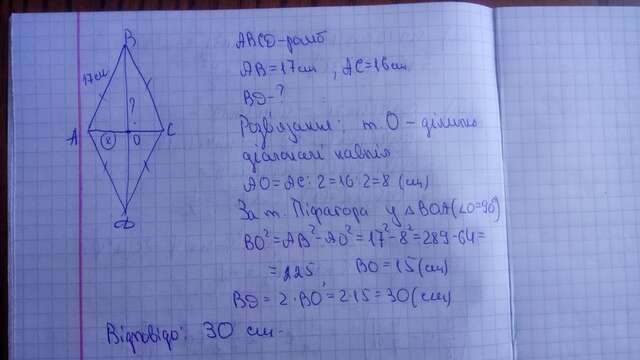 B
17см
?
A 8 O C
D
ABCD-ромб
AB=17см, AC=16см
BD-?
Розв'язання: т. O - ділить
діагоналі навпіл
AO=AC:2=16:2=8 (см)
За т. Піфагора у △BOA(∠O=90°)
BO²=AB²-AO²=17²-8²=289-64=
=225 BO=15(см)
BD=2·BO=2·15=30(см)
Відповідь: 30 см.